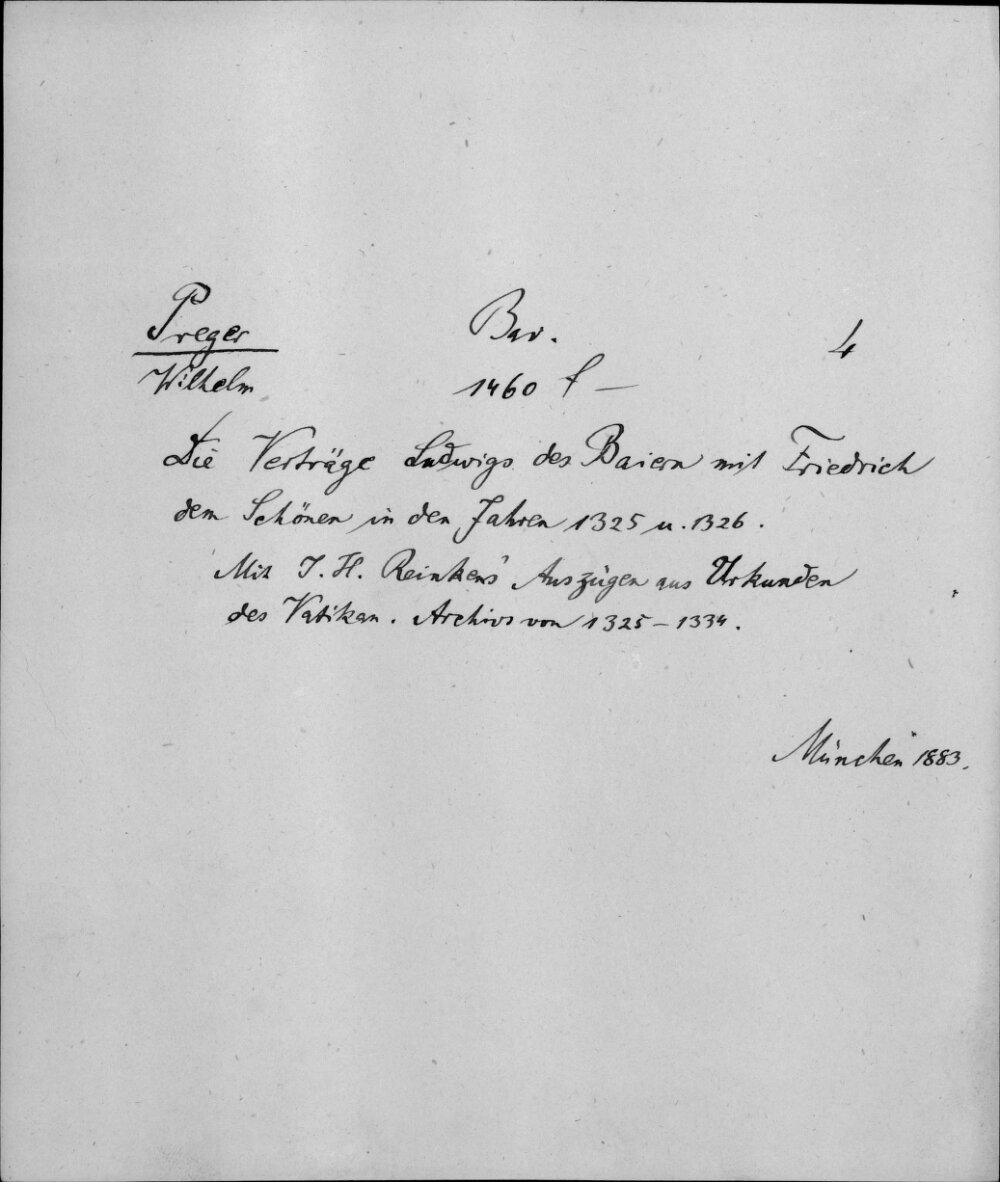 Preger Bav. 4
Wilhelm 1460 f —
Die Verträge Ludwigs des Baiern mit Friedrich
dem Schönen in den Jahren 1325 u. 1326.
Mit J. H. Reinkens' Auszügen aus Urkunden
des Vatikan. Archivs von 1325 – 1334.
München 1883.